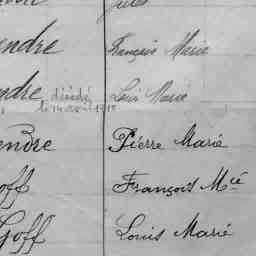 endre François Marie
endre décédé Louis Marie
le 14 août 1918
endre Pierre Marie
off François Mie
Goff Louis Marie